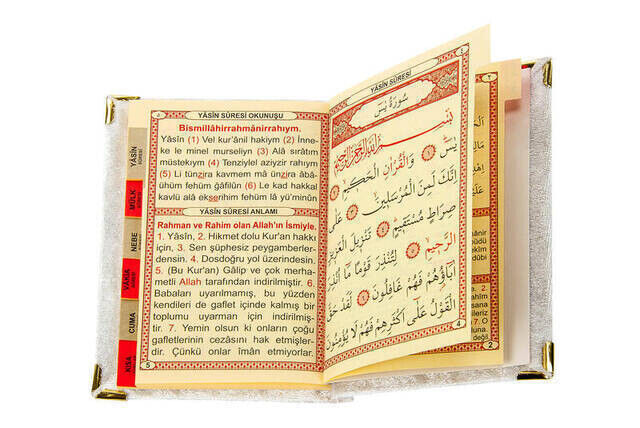 ٨
YÂSÎN SÛRESİ OKUNUŞU
Bismillâhirrahmânirrahıym.
Yâsîn (1) Vel kur'ânil hakiym (2) İnne-
ke le minel murseliyn (3) Alâ sırâtım
müstekıym (4) Tenziylel aziyzir rahıym
(5) Li tünzira kavmem mâ ünzira âbâ-
ühüm fehüm ğâfilûn (6) Le kad hakkal
kavlü alâ ekserihim fehüm lâ yü'minûn
YÂSÎN SÛRESİ ANLAMI
Rahman ve Rahim olan Allah'ın İsmiyle.
1. Yâsîn, 2. Hikmet dolu Kur'an hakkı
için, 3. Sen şüphesiz peygamberler-
densin. 4. Dosdoğru yol üzerindesin.
5. (Bu Kur'an) Gâlip ve çok merha-
metli Allah tarafından indirilmiştir. 6.
Babaları uyarılmamış, bu yüzden
kendileri de gaflet içinde kalmış bir
toplumu uyarman için indirilmiş-
tir. 7. Yemin olsun ki onların çoğu
gafletlerinin cezasını hak etmişler-
dir. Çünkü onlar îmân etmiyorlar.
5
YÂSÎN
SÛRESİ
MÜLK
NEBE
CUMA
KISA
٤
YÂSÎN SÛRESİ
سُورَةُ يٰسٓ
بِسْمِ اللّٰهِ الرَّحْمٰنِ الرَّحِيمِ
يٰسٓ ﴿١﴾ وَالْقُرْاٰنِ الْحَكِيمِ ﴿٢﴾
اِنَّكَ لَمِنَ الْمُرْسَلِينَ ﴿٣﴾ عَلٰى
صِرَاطٍ مُسْتَقِيمٍ ﴿٤﴾ تَنْزِيلَ الْعَزِيزِ
الرَّحِيمِ ﴿٥﴾ لِتُنْذِرَ قَوْمًا مَٓا اُنْذِرَ
اٰبَٓاؤُهُمْ فَهُمْ غَافِلُونَ ﴿٦﴾ لَقَدْ حَقَّ
الْقَوْلُ عَلٰٓى اَكْثَرِهِمْ فَهُمْ لَا يُؤْمِنُونَ
4
2